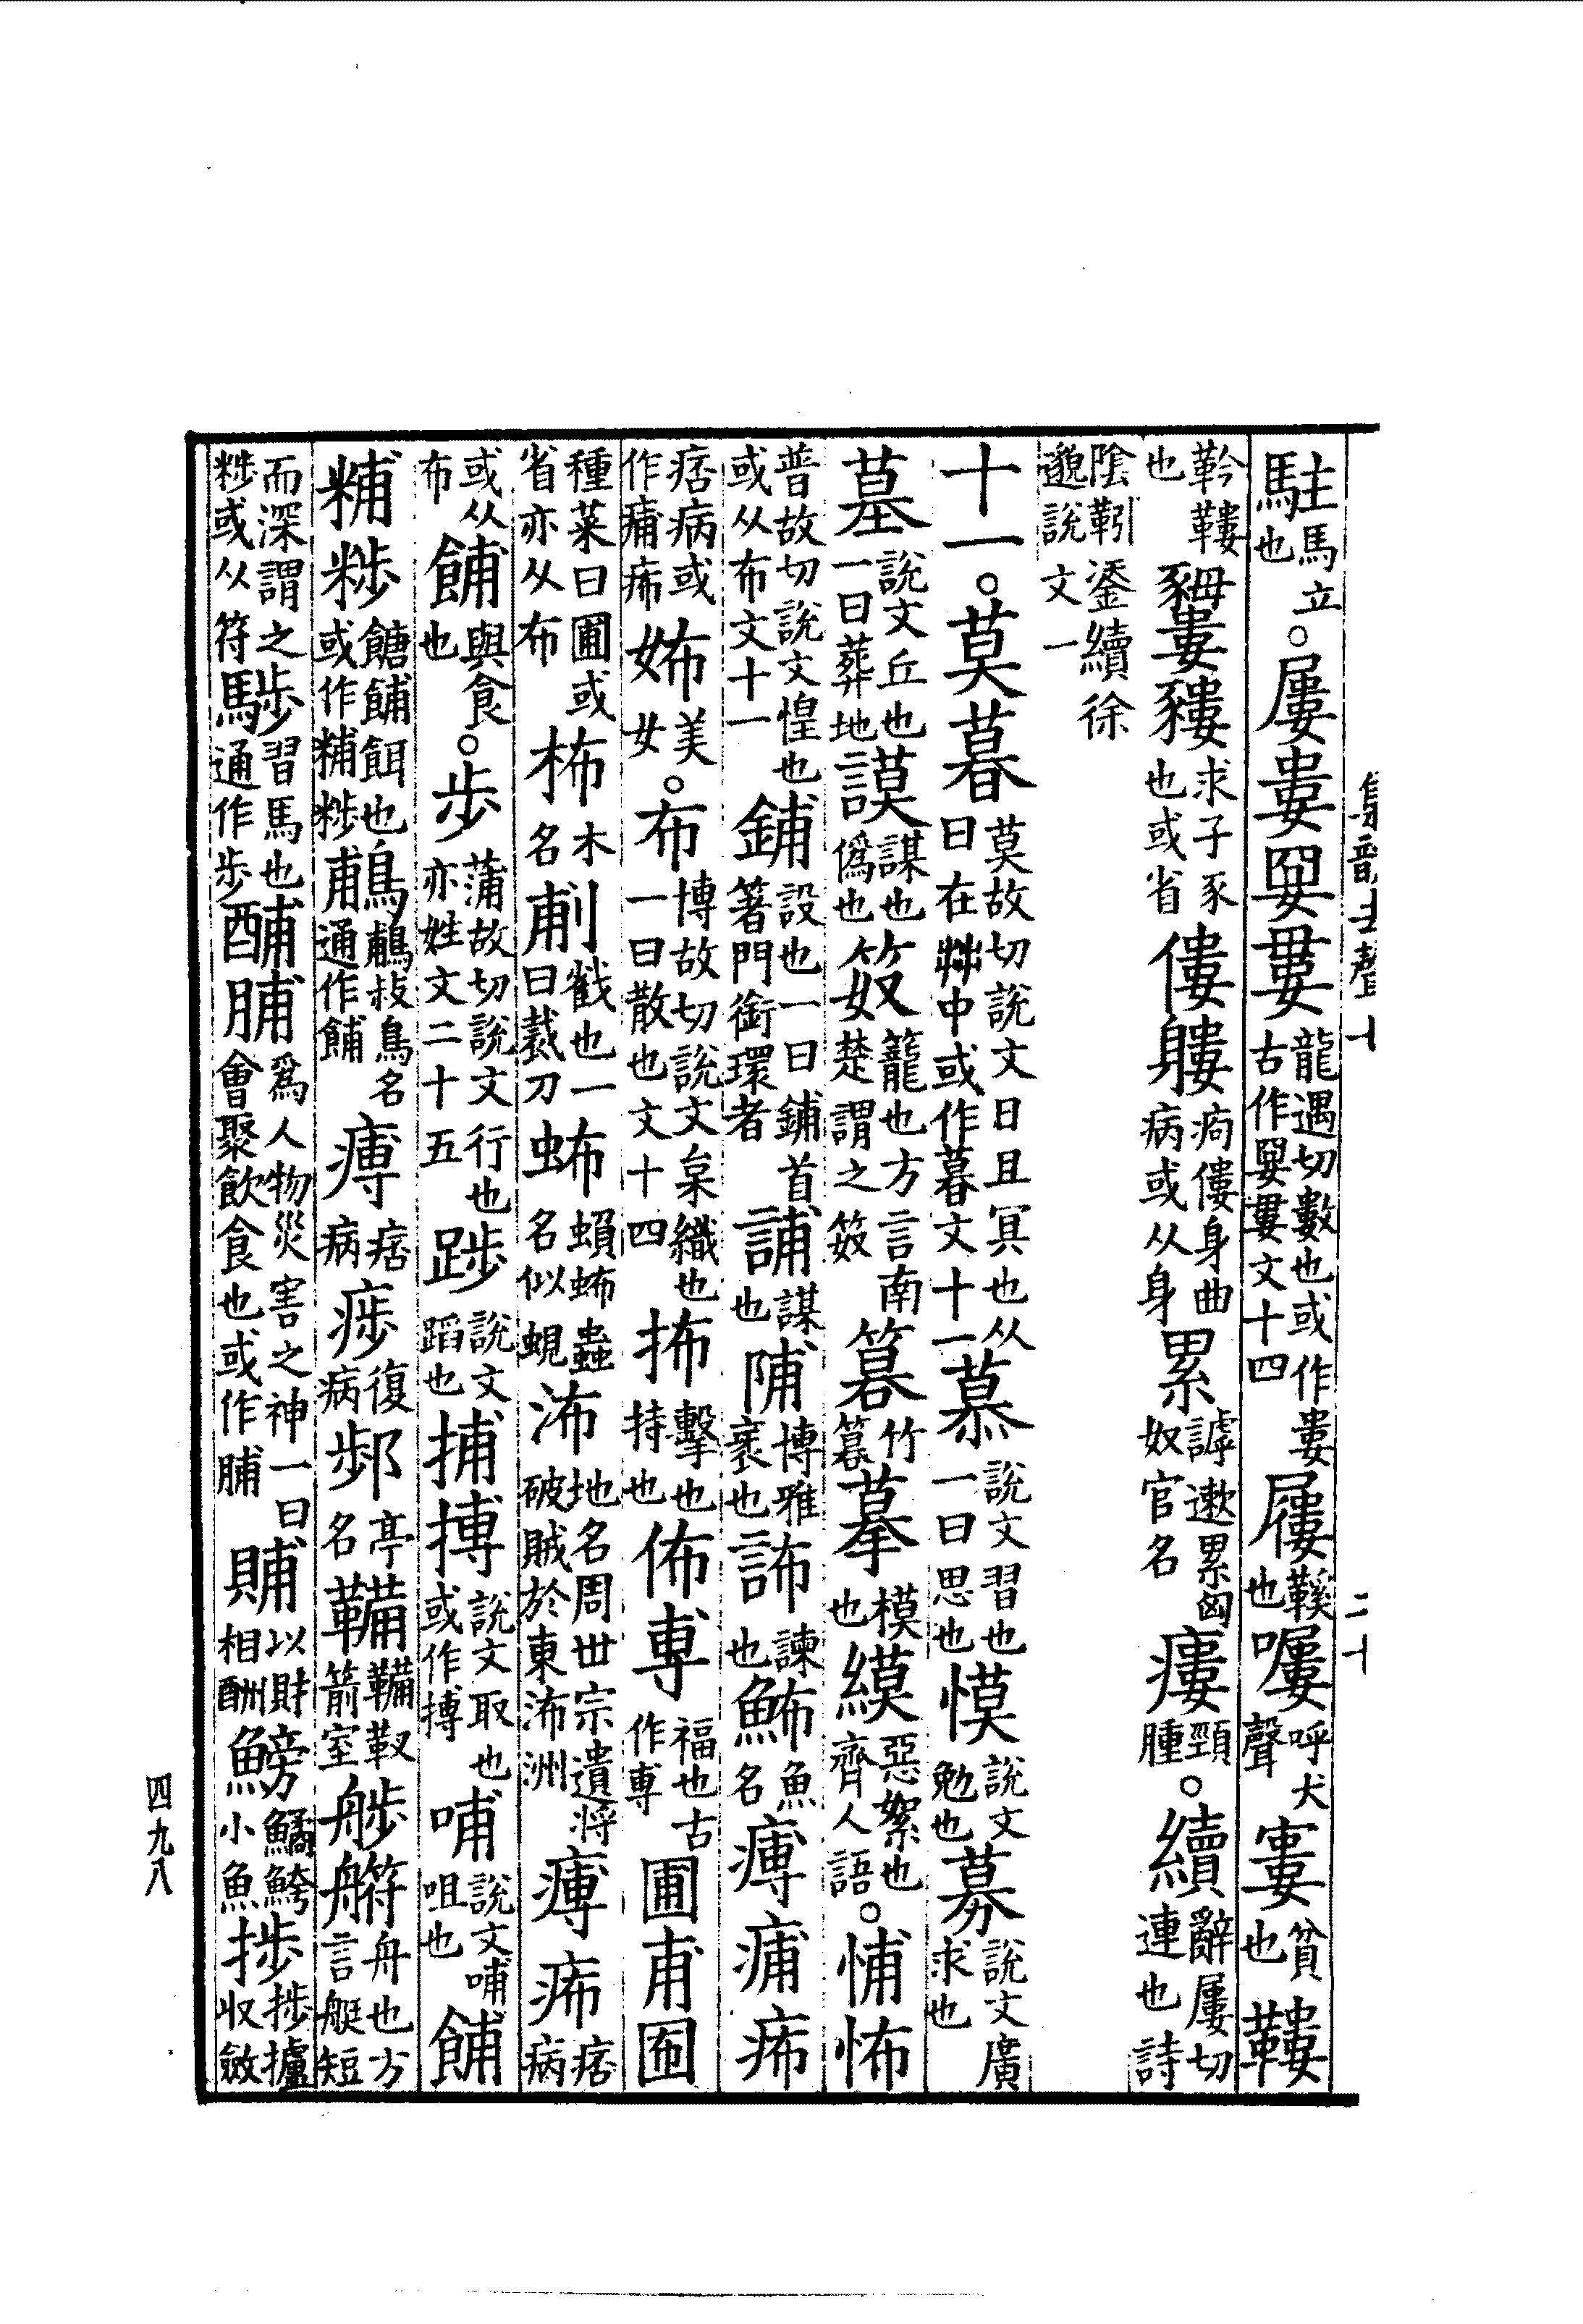 駐馬立也○屨婁𡝤𡣬龍遇切數也或作婁古作𡝤𡣬文十四屨鞵也㗕呼犬聲寠貧也鞻
鞮鞻也𧱰求子豕也或省僂軁痀僂身曲病或从身累謼遬累匈奴官名瘻頸腫○續辭屨切連也詩
陰靷鋈續徐邈說文一
十一○莫暮莫故切說文日且冥也从日在茻中或作暮文十一慕說文習也一曰思也慔說文勉也募說文廣求也
墓說文丘也一曰葬地謨謀也偽也笯籠也方言南楚謂之笯篹竹篡摹模也縸惡絮也齊人語○悑怖
普故切說文惶也或从布文十一鋪設也一曰鋪首箸門銜環者誧謀也陠博雅衺也䛔諫也鯆魚名𤸵痡㾟
痞病或作痡㾟㛍美女○布博故切說文枲織也一曰散也文十四抪擊也持也佈尃福也古作尃圃甫𡈹
種菜曰圃或省亦从布柨木名㓡㦸也一曰裁刀蛂䗩蛂蟲名似蜆㳍地名周世宗遺將破賊於東㳍洲𤸵㾟痞病
或从布餔與食也○步蒲故切說文行也亦姓文二十五踄說文蹈也捕搏說文取也或作搏哺說文哺咀也餔
䊇䊈餹餔餌也或作䊇䊈鵏鵏䳁鳥名通作餔𤸵痞病㾟復病䣝亭名鞴鞴靫箭室艀舟也方言艇短
而深謂之䒀或从符䮛習馬也通作步酺脯為人物災害之神一曰會聚飲食也或作脯賻以財相酬鰟鱊鮬小魚捗捗攎收斂
集韻去聲十
二十
四九八